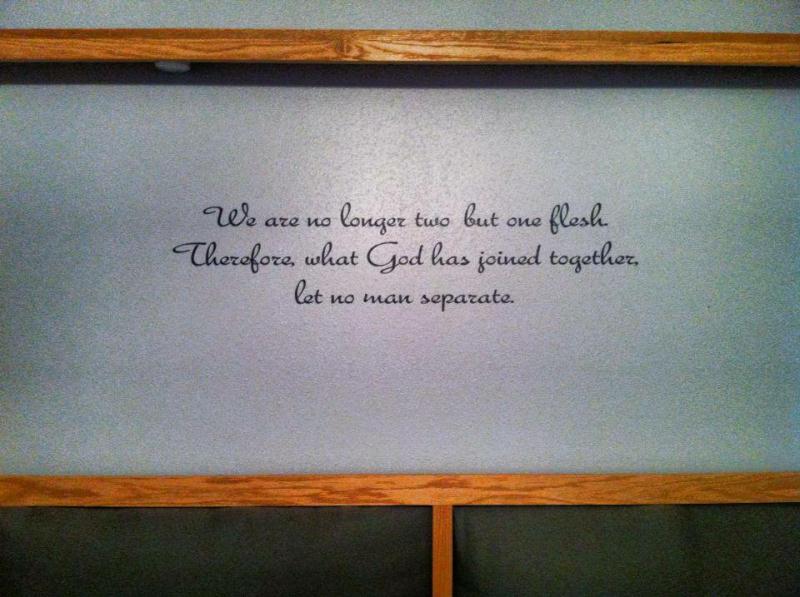 We are no longer two but one flesh.
Therefore, what God has joined together,
let no man separate.